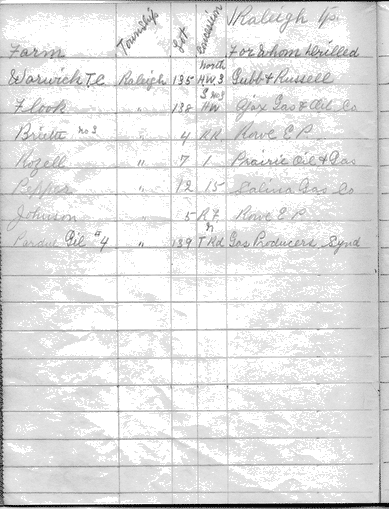 Raleigh Tp.
Farm Township Lot Concession For Whom Drilled
North
Warwich T.E Raleigh 135 HW.3 Gubb & Russell
S
Flook " 138 HW Ajax Gas & Oil Co
Briette no 3 " 4 RR Rowe E.P.
Kozell " 7 1 Prairie Oil & Gas
Pepper " 12 15 Salina Gas Co
Johnson " 5 R F Rowe E.P.
n
Pardue Gil #4 " 139 T Rd Gas Producers Synd